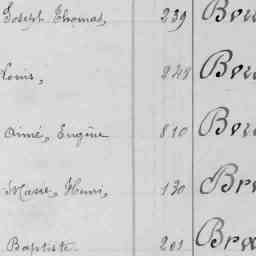 Joseph Thomas, 239 Bou
Louis, 248 Bou
Aimé, Eugène 810 Bou
Marre, Henri, 130 Bre
Baptiste 201 Brex